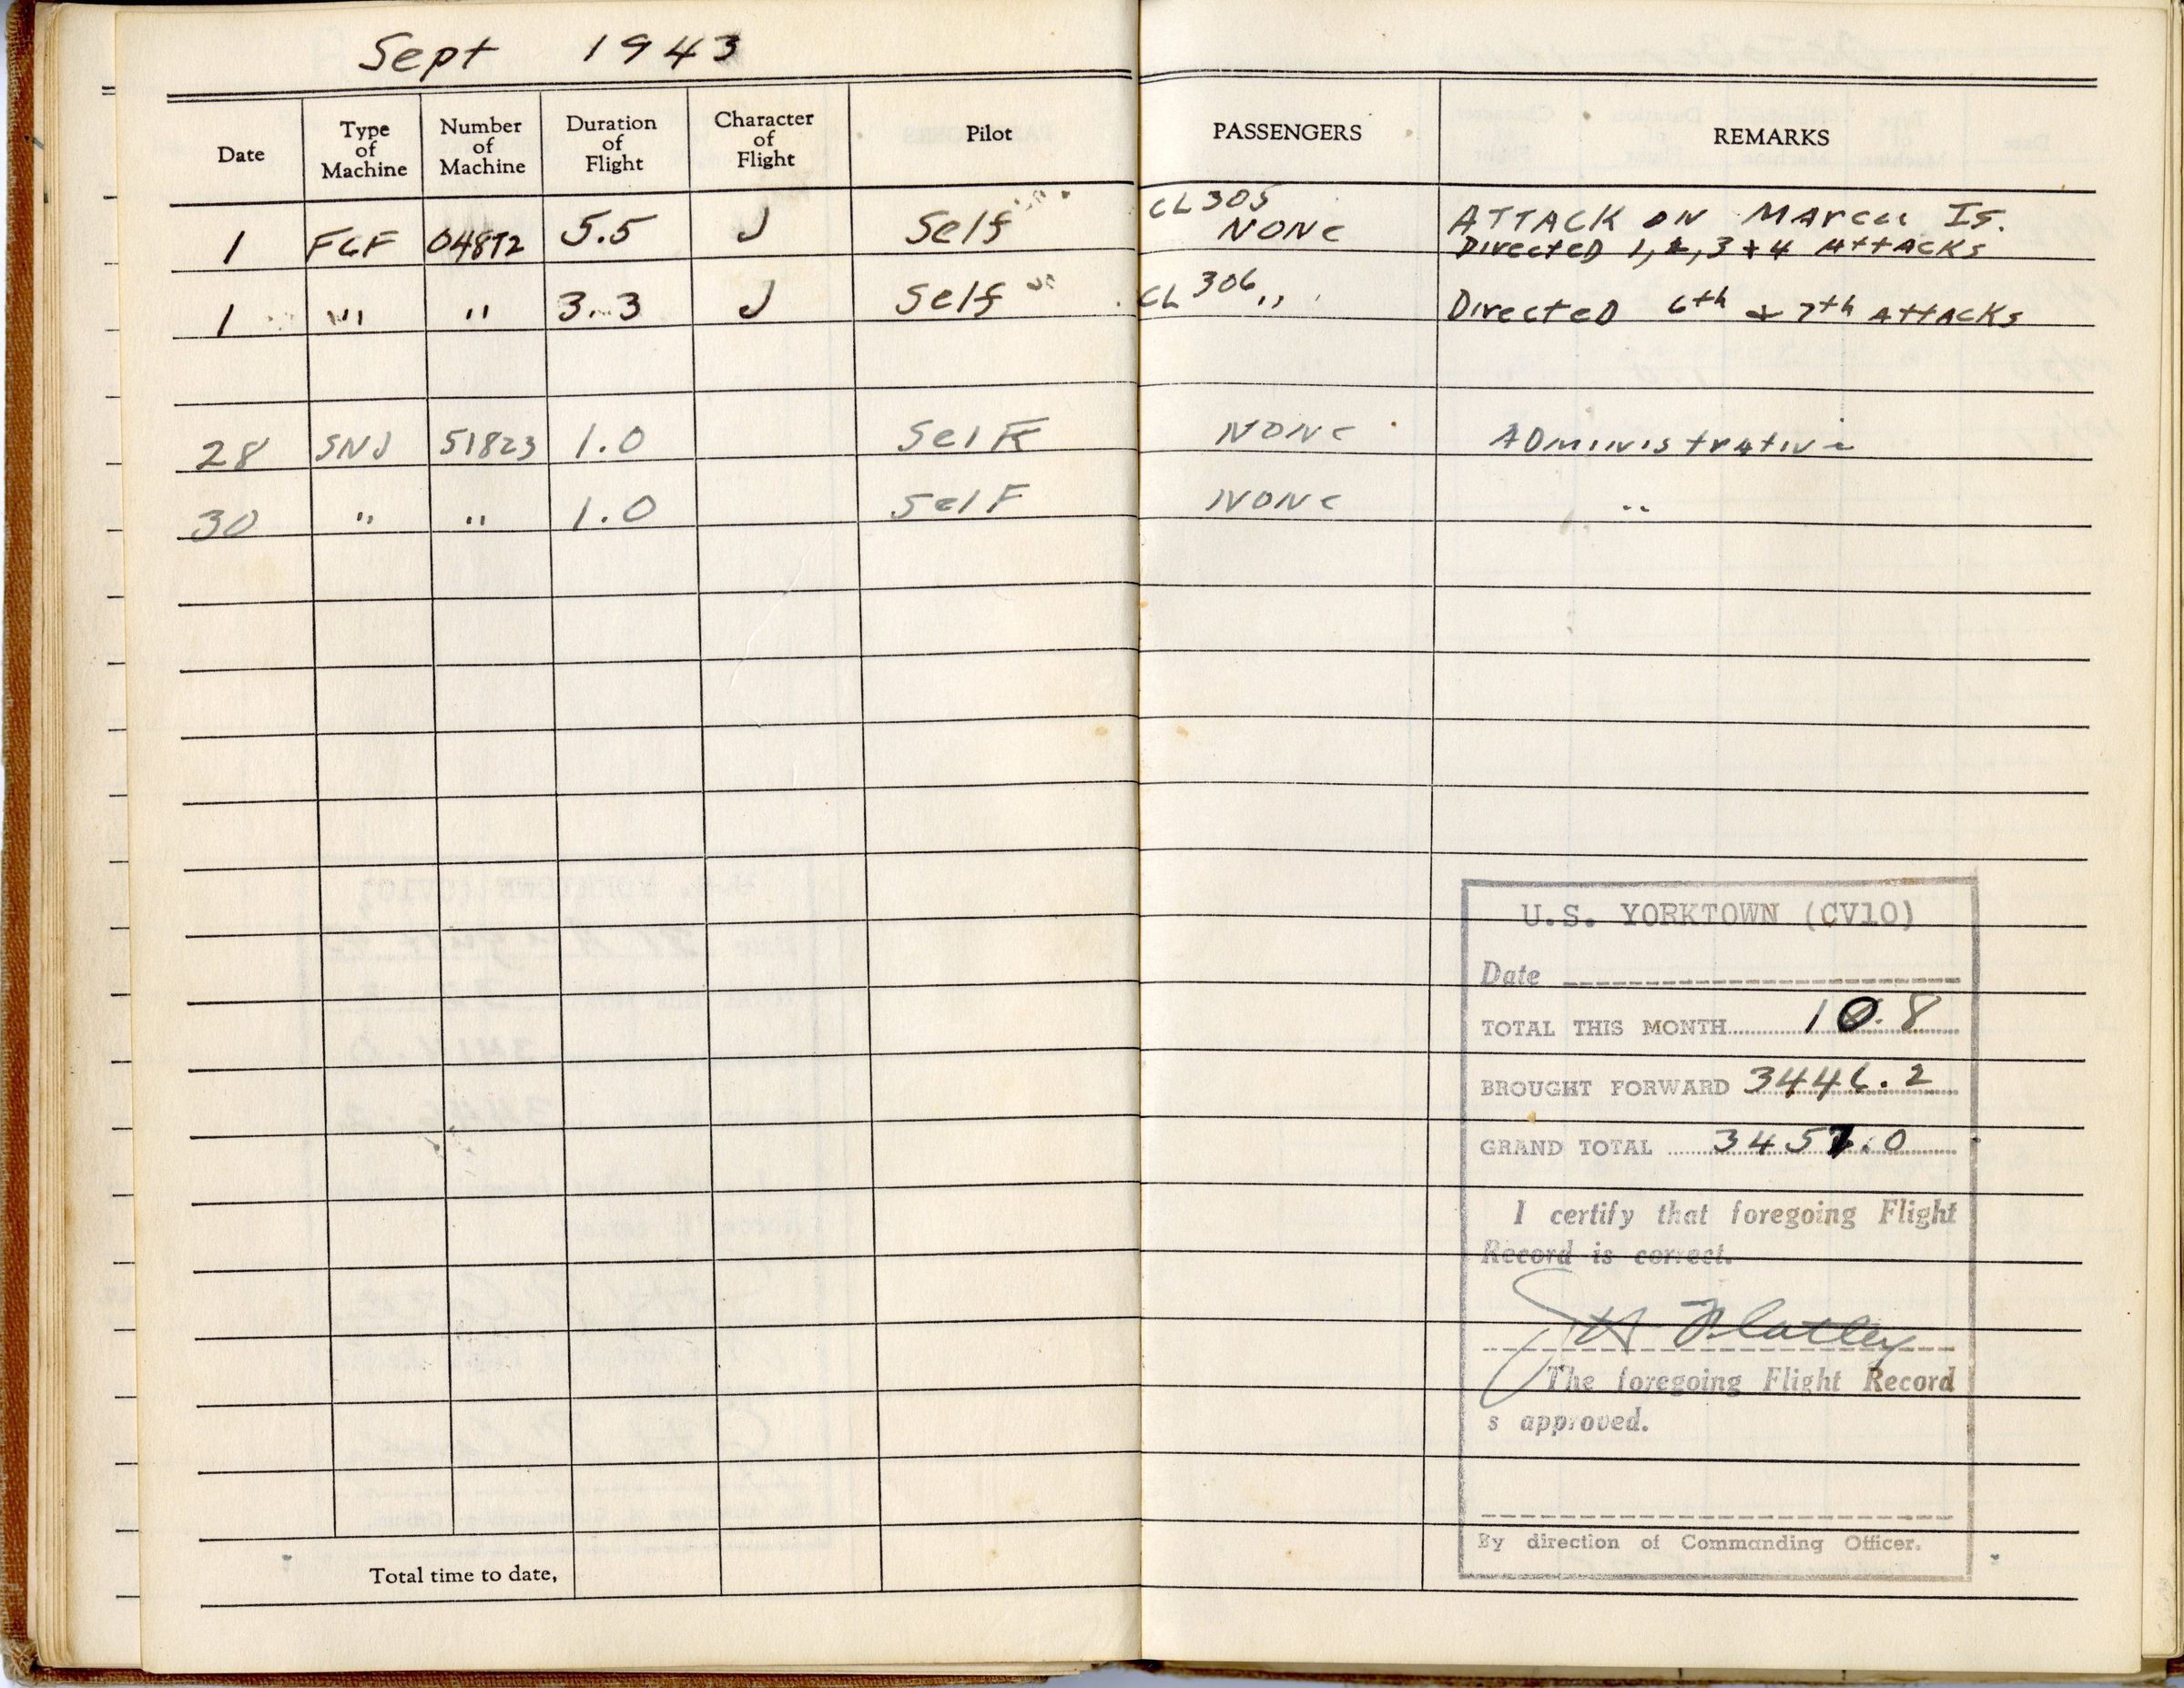 Sept 1943
Date Type of Machine Number of Machine Duration of Flight Character of Flight Pilot PASSENGERS REMARKS
CL 305
1 F6F 04872 5.5 J Self NONE ATTACK ON MARCU IS.
Directed 1, 2, 3 + 4 Attacks
1 " " 3.3 J Self CL 306 " Directed 6th & 7th Attacks
28 SNJ 51823 1.0 Self NONE Administrative
30 " " 1.0 Self NONE "
U.S. YORKTOWN (CV10)
Date
TOTAL THIS MONTH 10.8
BROUGHT FORWARD 3446.2
GRAND TOTAL 3457.0
I certify that foregoing Flight
Record is correct.
J H Flatley
The foregoing Flight Record
s approved.
By direction of Commanding Officer.
Total time to date,